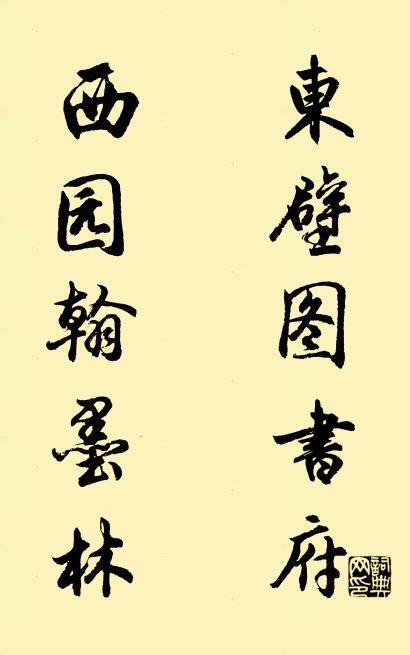 東壁图書府
西园翰墨林
詞典网印